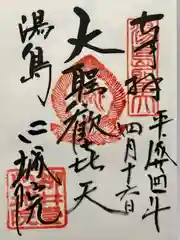 奉拝
平成廿四年
四月十六日
大聖歓喜天
湯島
心城院